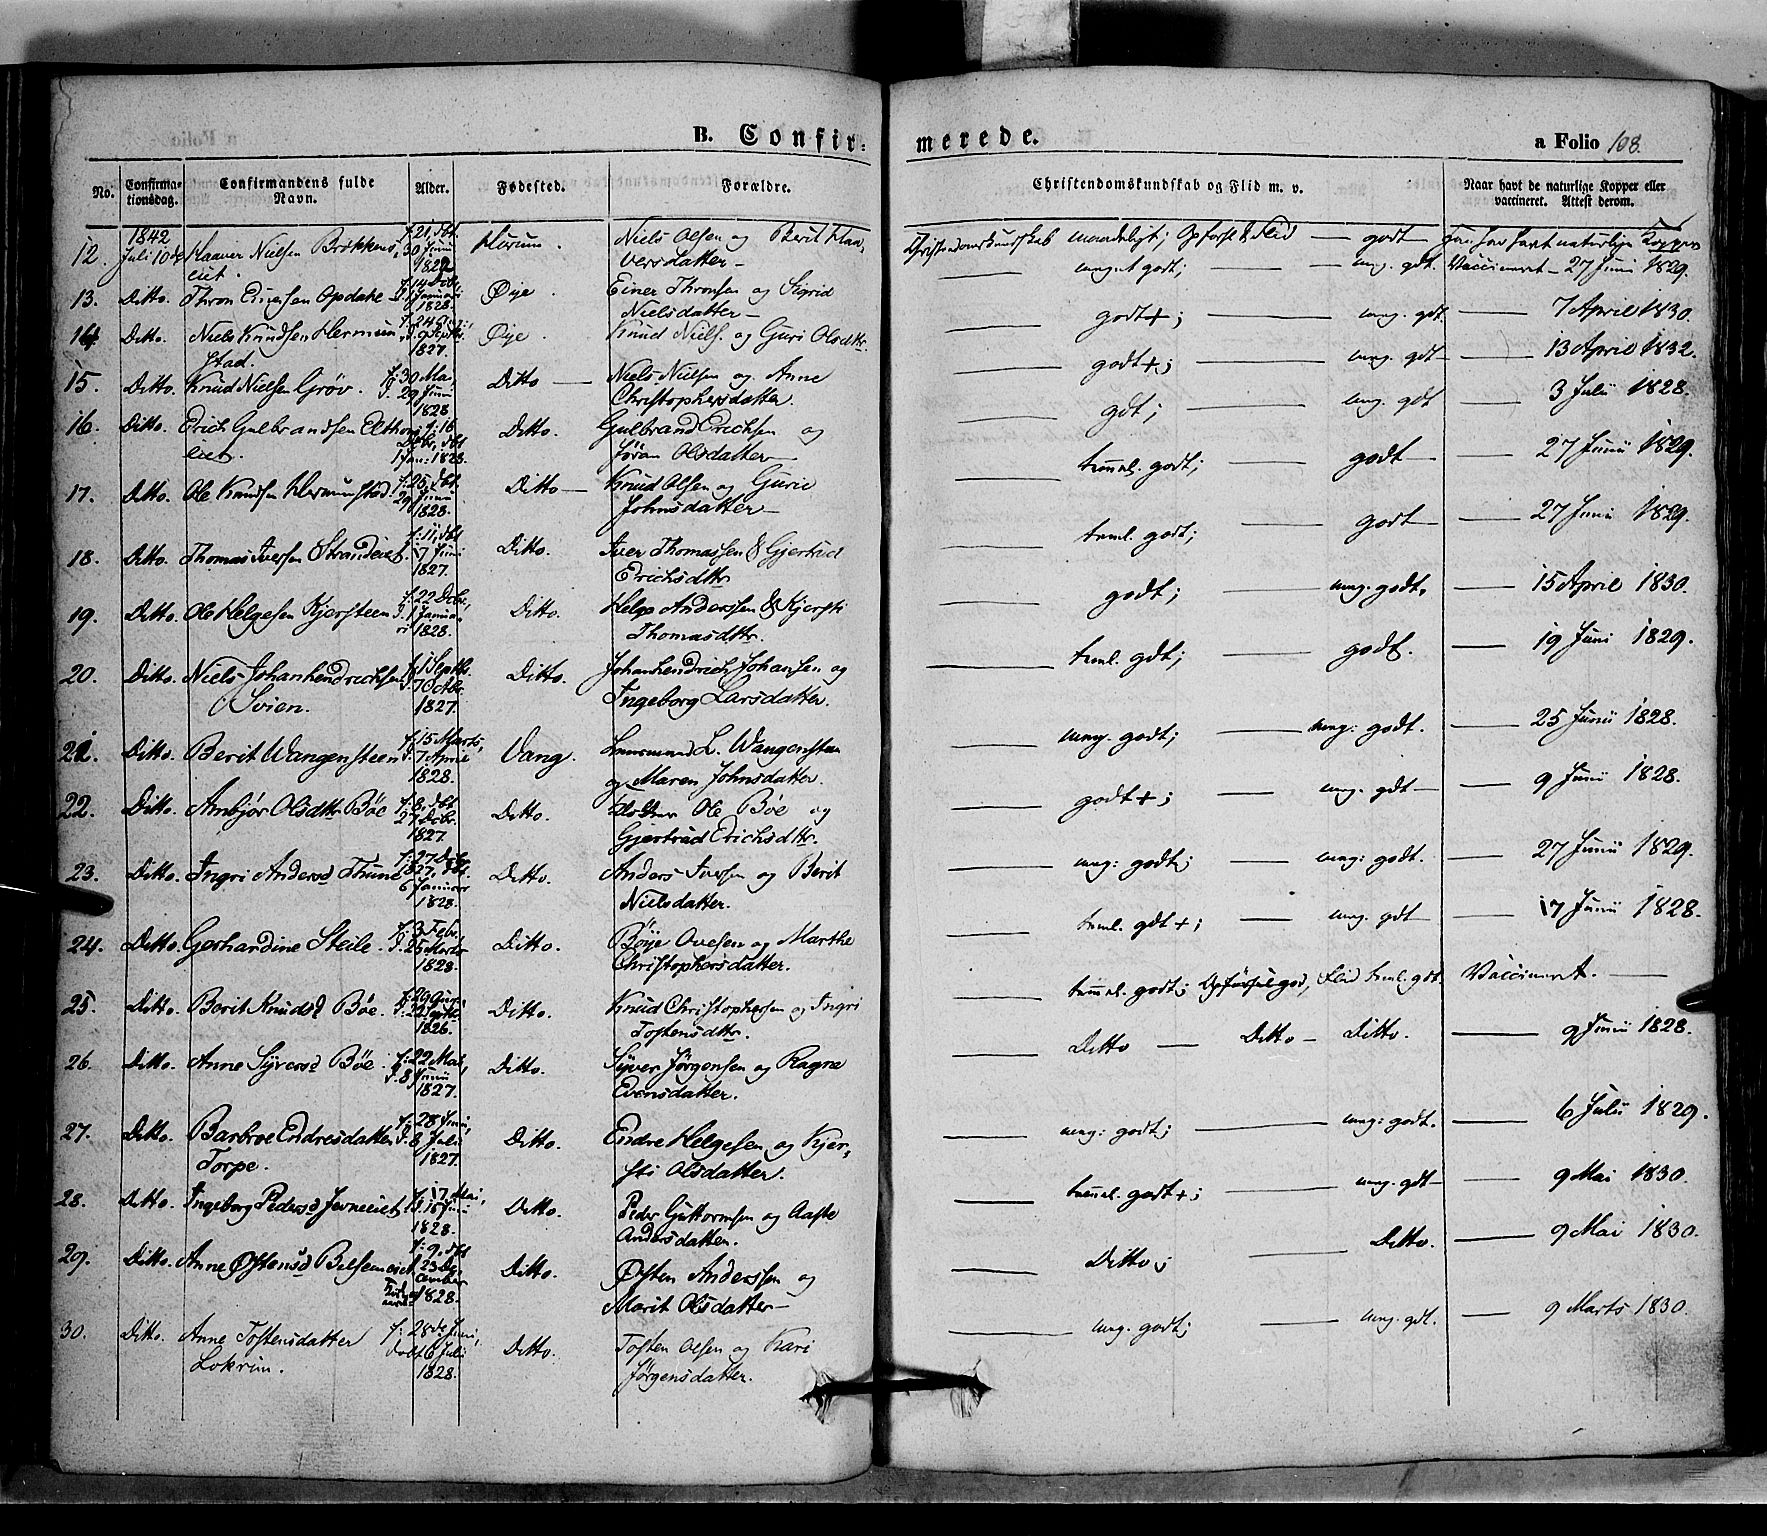 B. Confirmerede.
a Folio 108.
No. Confirmationsdag. Confirmandens fulde Navn. Alder. Fødested. Forældre. Christendomskundskab og Flid m. v. Naar havt de naturlige Kopper eller vaccineret. Attest derom.
1842
12. Juli 10de Haaver Nielsen Brækkeneiet. f. 21, dbt 30 Juni 1822 Hurum. Niels Olsen og Berit Haaversdatter Christendomskundskab maadeligt; Opførsel & Flid godt har havt naturlige Kopper
13. Ditto. Thron Einersen Opdahl f. 14 Dcbr, d. 1 Januari 1828. Øije. Einer Thronsen og Sigrid Nielsdatter meget godt; mg. gdt. Vaccineret 27 Juni 1829.
14. Ditto. Niels Knudsen Hermunstad. f. 24 Aug, d. 9 Septb. 1827. Øije. Knud Niels. og Guri Olsdtr. godt+; mg. gdt. 7 April 1830.
15. Ditto. Knud Nielsen Grøv. f. 30 Mai, d. 29 Juni 1828 Ditto Niels Nielsen og Anne Christophersdatter. godt+; mg. gdt 13 April 1832.
16. Ditto. Erich Gulbrandsen Elthoneiet. f. 16 Dcbr, dbt 1 Jan: 1828. Ditto. Gulbrand Erichsen og Jøran Olsdatter gdt; mg. gdt 3 Julii 1828.
17. Ditto. Ole Knudsen Hermunstad. f. 25, dbt. 29 Juni 1828. Ditto Knud Olsen og Gurie Johnsdatter temml. godt; godt 27 Junii 1829.
18. Ditto. Thomas Iversen Strandeiet f. 11, dbt 17 Juni 1827. Ditto. Iver Thomassen & Gjertrud Erichsdtr teml. godt; godt 27 Junii 1829.
19. Ditto. Ole Helgesen Kjersteen f. 22 Dcbr, d. 1 Januari 1828. Ditto. Helge Anderssen & Kjersti Thomasdtr. godt; mg. godt. 15 April 1830.
20. Ditto. Niels Johanhendrichsen Svien. f. 1 Septbr. d. 7 Octbr. 1827. Ditto. Johanhendrich Johansen og Ingeborg Larsdatter. teml. gdt; godt. 19 Juni 1829.
21. Ditto. Berit Wangensteen f. 15 Marts, d. 7 April 1828. Vang. Lensmand L. Wangensteen og Maren Johnsdatter. mg. godt; mg: godt. 25 Junii 1828.
22. Ditto. Anbjør Olsdtr. Bøe f. 8, dbt 27 Dcbr. 1827 Ditto. Ole Bøe og Gjertrud Erichsdtr. godt+; mg. gdt 9 Junii 1828.
23. Ditto. Ingri Andersd Thune f. 27 Dcbr 1827, dbt. 6 Januar 1828. Ditto. Anders Iversen og Berit Nielsdatter. mg: godt; mg: godt. 27 Junii 1829.
24. Ditto. Gerhardine Steile. f. 3 Febr, d. 25 Marts 1828. Ditto. Bøije Ovesen og Marthe Christophersdatter. teml. gdt+; mg. gdt 17 Junii 1828.
25. Ditto. Berit Knudsd Bøe. 1826. Ditto. Knud Christophersen og Ingri Tostensdtr. temml. godt; Opførsel god, Flid teml. gdt. Vaccineret.
26. Ditto. Anne Syversd Bøe. f. 22 Mai, d. 8 Junii 1827. Ditto. Syver Jørgensen og Ragne Evensdatter. Ditto Ditto Ditto. 9 Junii 1828.
27. Ditto. Barbroe Endresdatter Torpe. f. 28 Juni, d. 8 Juli 1827. Ditto. Endre Helgesen og Kjersti Olsdatter. mg: godt; mg: godt. 6 Julii 1829.
28. Ditto. Ingeborg Pedersd Javneeiet f. 17 Mai, d. 15 Juni 1828. Ditto. Peder Guttormsen og Aaste Andersdatter. temml. godt+; mg. gdt 9 Mai 1830.
29. Ditto. Anne Østensd Belsemeiet f. 9, dbt 23 December 1828. Ditto. Østen Anderssen og Marit Olsdatter Ditto; Ditto. 9 Mai 1830.
30. Ditto. Anne Tostensdatter Lokrim. f. 28de Juni, døbt 6 Juli 1828. Ditto. Tosten Olsen og Kari Jørgensdatter. mg. godt; mg. gdt. 9 Marts 1830.